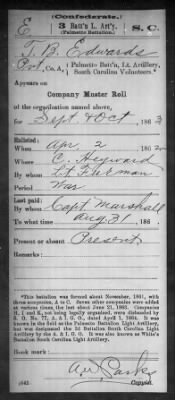 (Confederate.)
E 3 Batt'n L. Art'y. S. C.
(Palmetto Battalion.)
T. B. Edwards
Pvt, Co. A, Palmetto Batt'n, Lt. Artillery,
South Carolina Volunteers.*
Appears on
Company Muster Roll
of the organization named above,
for Sept & Oct, 186 3
Enlisted:
When Apr. 2, 186
Where C. Heyward
By whom Lt Furman
Period War
Last paid:
By whom Capt Marshall
To what time Aug 31, 186
Present or absent Present
Remarks:
*This battalion was formed about November, 1861, with
three companies, A to C. Seven other companies were added
at various times, the last about June 21, 1862. Companies
H, I and K, not being legally organized, were disbanded by
S. O. No. 77, A. & I. G. O., dated April 2, 1864. It was
known in the field as the Palmetto Battalion Light Artillery,
but was designated the 3d Battalion South Carolina Light
Artillery by the A. & I. G. O. It was also known as White's
Battalion South Carolina Light Artillery.
Book mark:
(642)
Copyist.